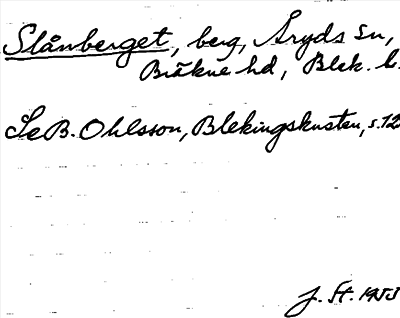 Slånberget, berg, Åryds sn,
Bräkne hd, Blek. l.
Se B. Ohlsson, Blekingskusten, s. 12
J. St. 1953